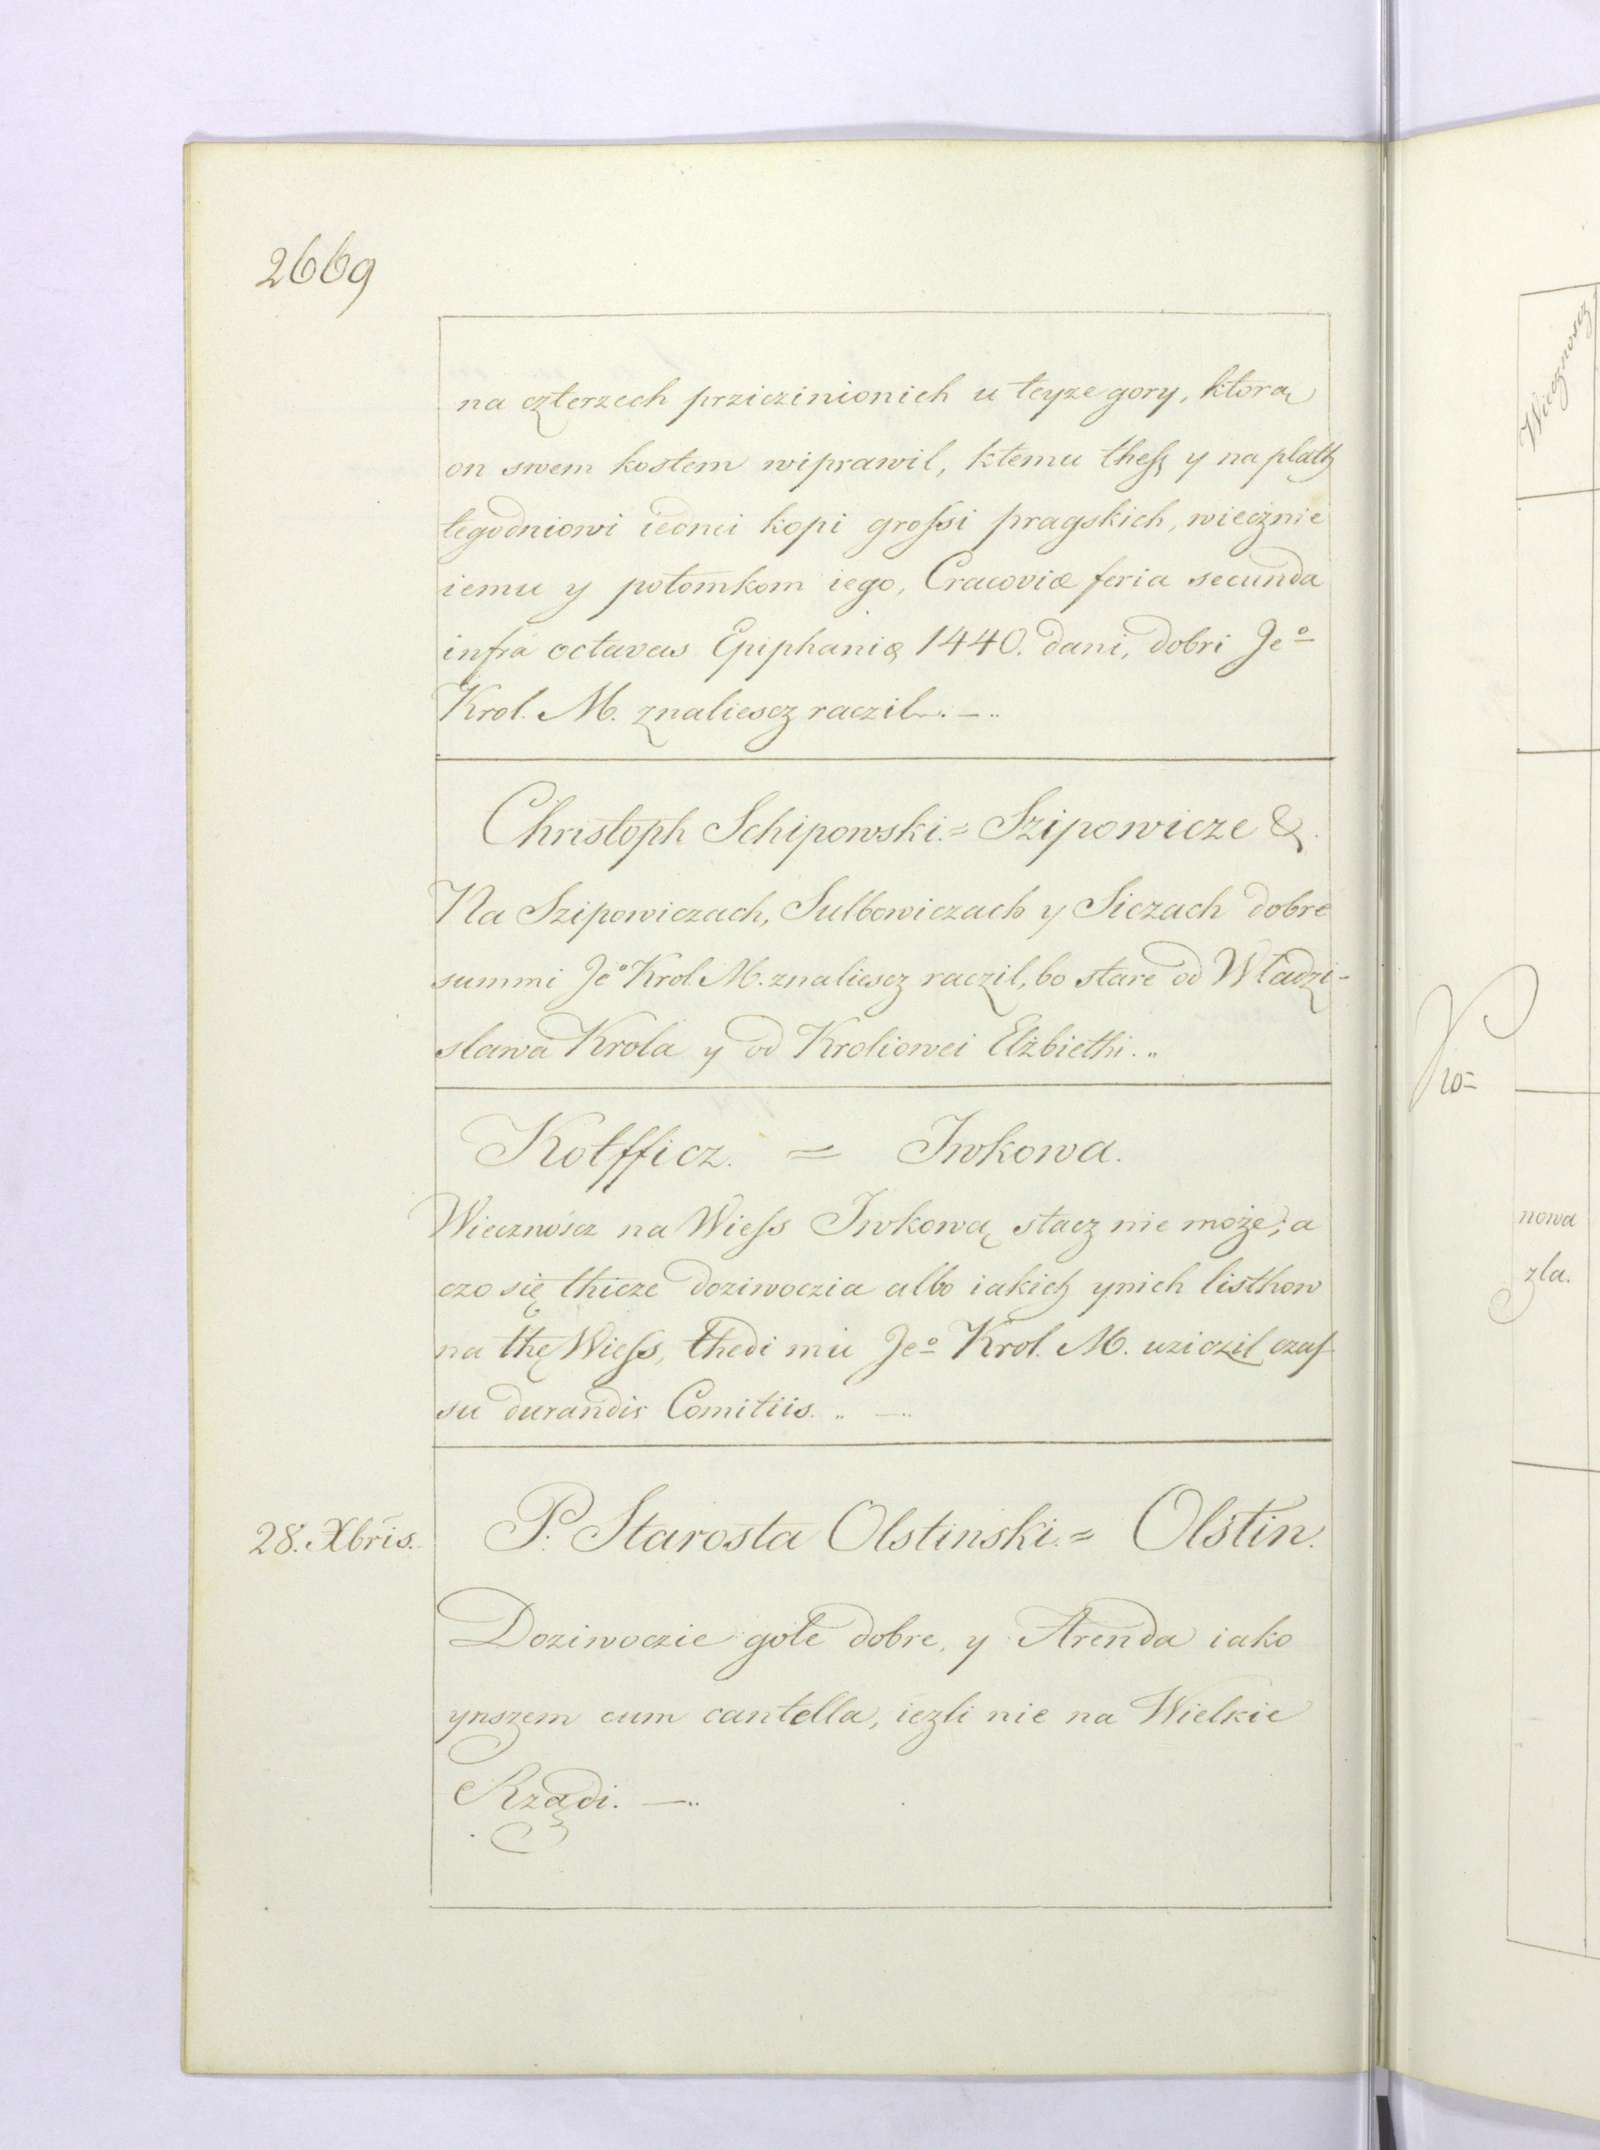 2669
na czterzech prziczinionich u teyze gory, ktorą
on swem kostem wiprawil, ktemu thesz y na plath
tegodniowi iednei kopi grossi pragskich, wiecznie
iemu y potomkom iego, Cracoviæ feria secunda
infra octavas Epiphaniæ 1440. dani, dobri Jeº
Krol. M. znaliescz raczil. —
Christoph Schipowski. = Szipowicze &.
Na Szipowiczach, Sulbowiczach y Siczach dobre
summi Jeº Krol. M. znaliescz raczil, bo stare od Wladzi-
slawa Krola y od Kroliowei Elżbiethi.
Kotfficz. = Iwkowa.
Wiecznoscz na Wiess Iwkową stacz nie może; a
czo się thicze doziwoczia albo iakich ynich listhow
na thę Wiess, thedi mu Jeº Krol. M. uziczil czas-
su durandis Comitiis. —
28. Xbris.
P. Starosta Olstinski. = Olstin.
Doziwoczie gołe dobre, y Arenda iako
ynszem cum cantella, iezli nie na Wielkie
Rządi. —
Wiecznoscz
nowa
zla.